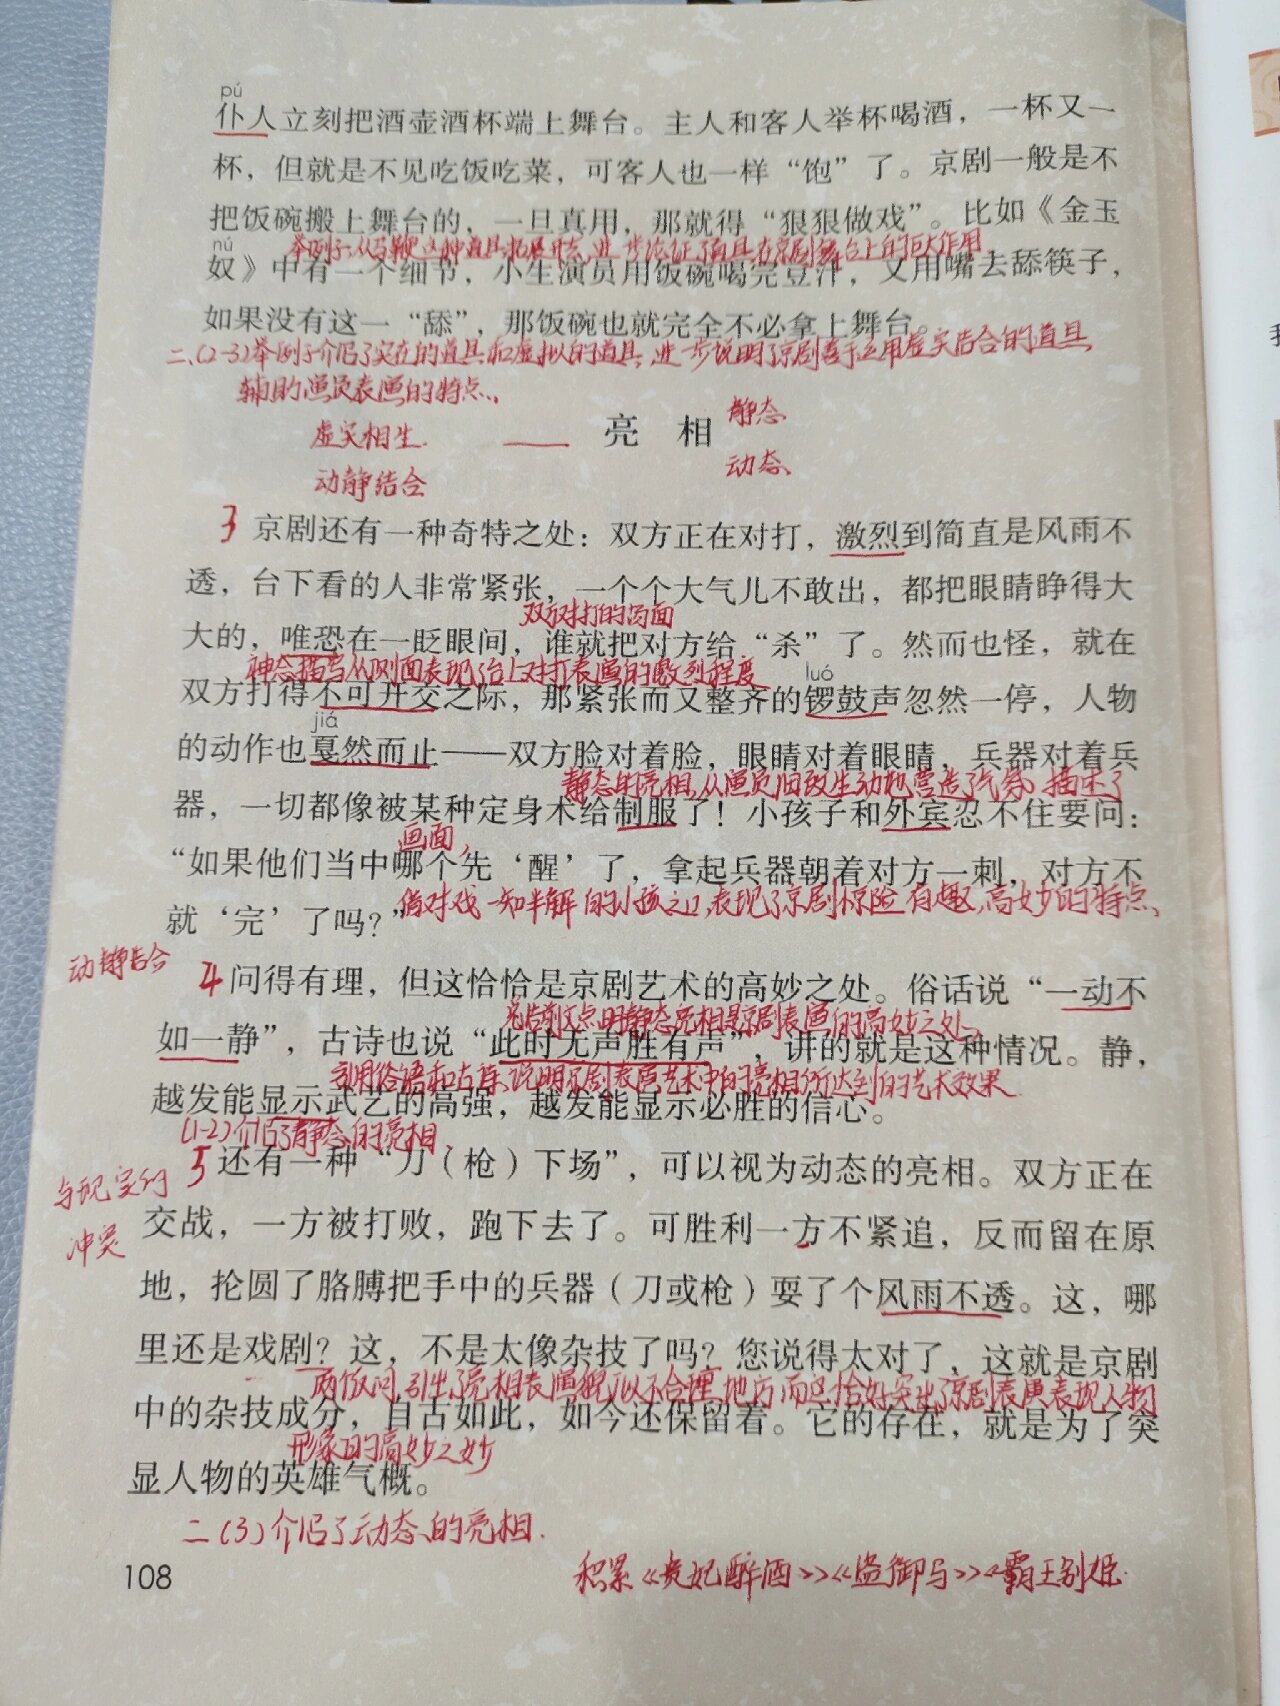 pú
仆人立刻把酒壶酒杯端上舞台。主人和客人举杯喝酒，一杯又一
杯，但就是不见吃饭吃菜，可客人也一样“饱”了。京剧一般是不
把饭碗搬上舞台的，一旦真用，那就得“狠狠做戏”。比如《金玉
举例子:从马鞭这种道具拓展开去,进一步论证了道具在京剧舞台上的巨大作用
nú
奴》中有一个细节，小生演员用饭碗喝完豆汁，又用嘴去舔筷子，
如果没有这一“舔”，那饭碗也就完全不必拿上舞台。
二、(2-3)举例子介绍了实在的道具和虚拟的道具,进一步说明了京剧善于运用虚实结合的道具
辅助演员表演的特点、
虚实相生. 亮 相 静态
动静结合 动态
3 京剧还有一种奇特之处：双方正在对打，激烈到简直是风雨不
透，台下看的人非常紧张，一个个大气儿不敢出，都把眼睛睁得大
双方对打的场面
大的，唯恐在一眨眼间，谁就把对方给“杀”了。然而也怪，就在
神态描写从侧面表现了台上对打表演的激烈程度
luó
双方打得不可开交之际，那紧张而又整齐的锣鼓声忽然一停，人物
jiá
的动作也戛然而止——双方脸对着脸，眼睛对着眼睛，兵器对着兵
静态的亮相,从演员 生动地营造了气氛、描述了
器，一切都像被某种定身术给制服了！小孩子和外宾忍不住要问：
画面,
“如果他们当中哪个先‘醒’了，拿起兵器朝着对方一刺，对方不
借对戏一知半解的小孩之口,表现了京剧惊险有趣,高妙的特点、
就‘完’了吗？”
动静结合
4 问得有理，但这恰恰是京剧艺术的高妙之处。俗话说“一动不
承结前文点明静态亮相是京剧表演的高妙之处、
如一静”，古诗也说“此时无声胜有声”，讲的就是这种情况。静，
引用俗语和古诗,说明京剧表演艺术中的亮相所达到的艺术效果
越发能显示武艺的高强，越发能显示必胜的信心。
(1-2)介绍了静态的亮相
5 还有一种“刀（枪）下场”，可以视为动态的亮相。双方正在
与现实的
交战，一方被打败，跑下去了。可胜利一方不紧追，反而留在原
冲突
地，抡圆了胳膊把手中的兵器（刀或枪）耍了个风雨不透。这，哪
里还是戏剧？这，不是太像杂技了吗？您说得太对了，这就是京剧
两个反问,引出了亮相表演貌似不合理地方,而这恰好突出京剧表演表现人物
中的杂技成分，自古如此，如今还保留着。它的存在，就是为了突
形象的高妙之妙
显人物的英雄气概。
二(3)介绍了动态的亮相.
108
积累《贵妃醉酒》《盗御马》《霸王别姬》